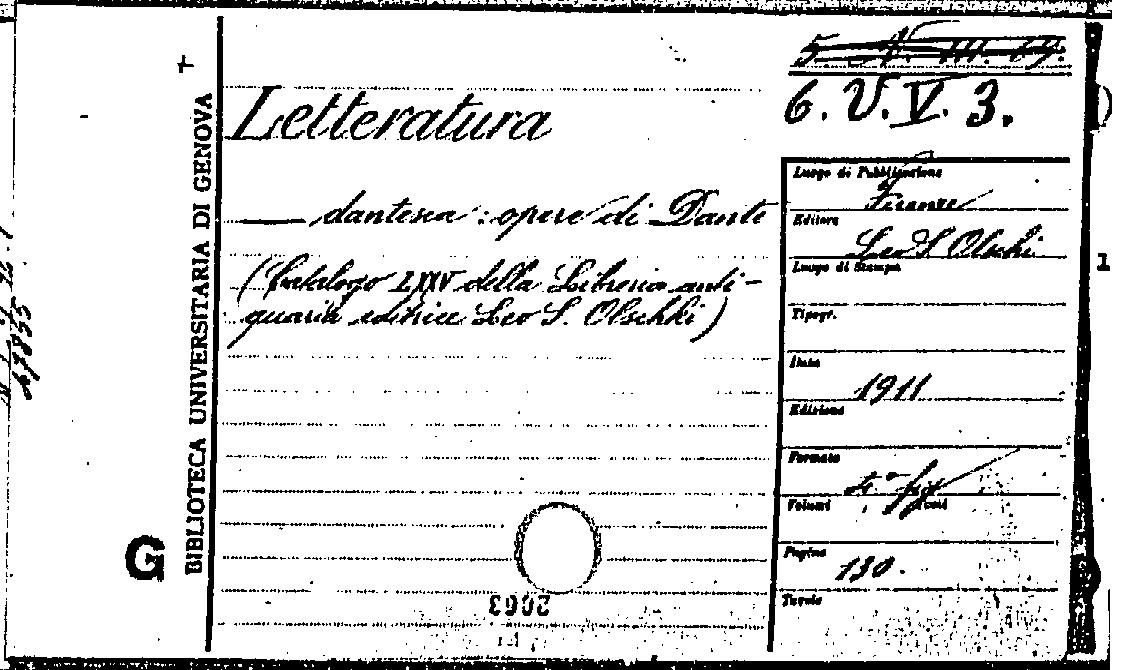 5. N. III. 19.
6. V. V. 3.
Letteratura
— dantesca : opere di Dante
(Catalogo LXXV della Libreria anti-
quaria editrice Leo S. Olschki)
BIBLIOTECA UNIVERSITARIA DI GENOVA
G
Luogo di Pubblicazione
Firenze
Editore
Leo S. Olschki
Luogo di Stampa
Tipogr.
Data
1911
Edizione
Formato
4° fig
Volumi
Pagine
130.
Tavole
2063
1